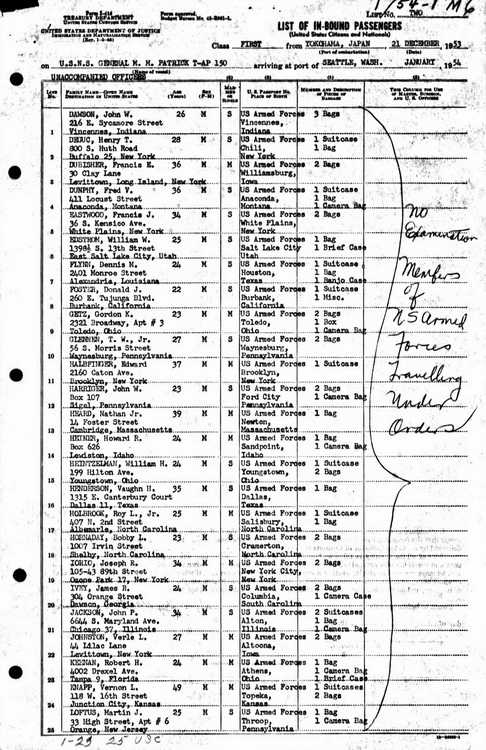 Form I-416
TREASURY DEPARTMENT
UNITED STATES CUSTOMS SERVICE
UNITED STATES DEPARTMENT OF JUSTICE
IMMIGRATION AND NATURALIZATION SERVICE
Form approved.
LIST NO. TWO
LIST OF IN-BOUND PASSENGERS
(United States Citizens and Nationals)
Class FIRST from YOKOHAMA, JAPAN 21 DECEMBER, 1953
(Port of embarkation) (Date)
on U.S.N.S. GENERAL M. M. PATRICK T-AP 150 arriving at port of SEATTLE, WASH. JANUARY 1954
(Name of vessel)
UNACCOMPANIED OFFICERS
LINE NO. FAMILY NAME—GIVEN NAME DESTINATION IN UNITED STATES AGE (Years) SEX (F-M) MARRIED OR SINGLE U. S. PASSPORT NO. PLACE OF BIRTH NUMBER AND DESCRIPTION OF PIECES OF BAGGAGE THIS COLUMN FOR USE OF MASTER, SURGEON, AND U. S. OFFICERS
DAWSON, John W. 26 M S US Armed Forces 3 Bags
216 E. Sycamore Street Vincennes,
1 Vincennes, Indiana Indiana
28 M S US Armed Forces 1 Suitcase
800 S. Huth Road Chili, 1 Bag
2 Buffalo 25, New York New York
DUBISHER, Francis E. 36 M M US Armed Forces 2 Bags
30 Clay Lane Williamsburg,
3 Levittown, Long Island, New York Iowa
DUNPHY, Fred V. 36 M S US Armed Forces 1 Suitcase
411 Locust Street Anaconda, 1 Bag
4 Anaconda, Montana Montana 1 Camera Bag
EASTWOOD, Francis J. 34 M S US Armed Forces 2 Bags
36 S. Kensico Ave. White Plains,
5 White Plains, New York New York
EDSTROM, William W. 25 M S US Armed Forces 1 Bag
1398½ S. 13th Street Salt Lake City 1 Brief Case
6 East Salt Lake City, Utah Utah
FLYNN, Dennis M. 24 M S US Armed Forces 1 Suitcase
2401 Monroe Street Houston, 1 Bag
7 Alexandria, Louisiana Texas 1 Banjo Case
FOSTER, Donald J. 22 M S US Armed Forces 1 Suitcase
260 E. Tujunga Blvd. Burbank, 1 Misc.
8 Burbank, California California
GETZ, Gordon K. 23 M M US Armed Forces 2 Bags
2321 Broadway, Apt # 3 Toledo, 1 Box
9 Toledo, Ohio Ohio 1 Camera Bag
GLENNEN, T. W., Jr. 27 M S US Armed Forces 2 Bags
56 S. Morris Street Waynesburg,
10 Waynesburg, Pennsylvania Pennsylvania
HALBFINGER, Edward 37 M M US Armed Forces 1 Suitcase
2160 Caton Ave. Brooklyn,
11 Brooklyn, New York New York
HARRIGER, John W. 23 M S US Armed Forces 2 Bags
Box 107 Ford City 1 Camera Bag
12 Sigel, Pennsylvania Pennsylvania
HEARD, Nathan Jr. 39 M M US Armed Forces 1 Bag
14 Foster Street Newton,
13 Cambridge, Massachusetts Massachusetts
HEINER, Howard R. 24 M M US Armed Forces 1 Bag
Box 626 Sandpoint, 1 Camera Bag
14 Lewiston, Idaho Idaho
HEINTZELMAN, William H. 24 M S US Armed Forces 1 Suitcase
199 Hilton Ave. Youngstown, 2 Bags
15 Youngstown, Ohio Ohio
HENDERSON, Vaughn H. 35 M S US Armed Forces 1 Bag
1315 E. Canterbury Court Dallas,
16 Dallas 11, Texas Texas
HOLBROOK, Roy L., Jr. 25 M M US Armed Forces 1 Suitcase
407 N. 2nd Street Salisbury, 1 Bag
17 Albemarle, North Carolina North Carolina
HORNADAY, Bobby L. 23 M S US Armed Forces 2 Bags
1007 Irvin Street Cramerton,
18 Shelby, North Carolina North Carolina
IORIO, Joseph R. 34 M M US Armed Forces 2 Bags
105-43 89th Street New York City,
19 Ozone Park 17, New York New York
IVEY, James R. 24 M S US Armed Forces 2 Bags
304 Orange Street Columbia, 1 Camera Case
20 Dawson, Georgia South Carolina
JACKSON, John P. 34 M S US Armed Forces 2 Suitcases
6644 S. Maryland Ave. Alton, 1 Bag
21 Chicago 37, Illinois Illinois 1 Camera Bag
JOHNSTON, Verle L. 27 M M US Armed Forces 2 Bags
44 Lilac Lane Altoona,
22 Levittown, New York Iowa
KEENAN, Robert H. 24 M M US Armed Forces 1 Bag
4002 Drexel Ave. Athens, 1 Camera Bag
23 Tampa 9, Florida Ohio 1 Brief Case
KNAPP, Vernon L. 49 M M US Armed Forces 1 Suitcases
118 W. 16th Street Topeka, 2 Bags
24 Junction City, Kansas Kansas
LOFTUS, Martin J. 25 M S US Armed Forces 1 Bag
33 High Street, Apt # 6 Throop, 1 Camera Bag
25 Orange, New Jersey Pennsylvania
No
Examination
Members
of
US Armed
Forces
Travelling
Under
Orders
1-25 25 USC